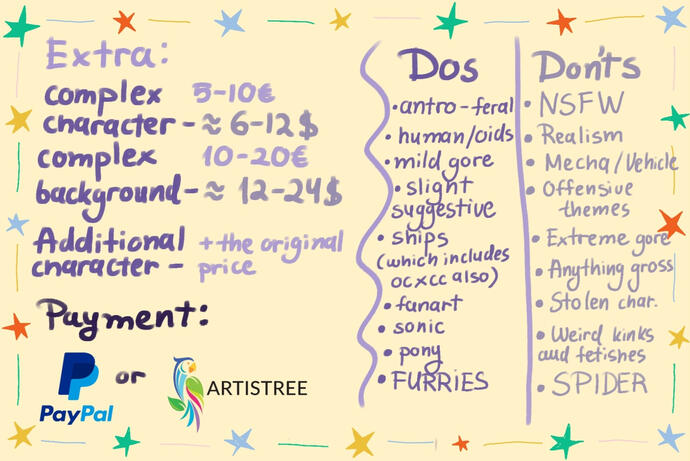 Extra:
complex 5-10€
character - ≈ 6-12$
complex 10-20€
background - ≈ 12-24$
Additional + the original
character - price
Payment:
PayPal or ARTISTREE
Dos
• antro-feral
• human/oids
• mild gore
• slight
suggestive
• ships
(which includes
ocxcc also)
• fanart
• sonic
• pony
• FURRIES
Don'ts
• NSFW
• Realism
• Mecha/Vehicle
• Offensive
themes
• Extreme gore
• Anything gross
• Stolen char.
• Weird kinks
and fetishes
• SPIDER